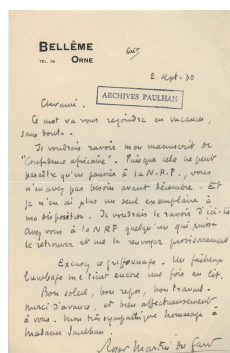 BELLÊME
TEL. 28 ORNE
fait
2 sept. 30
ARCHIVES PAULHAN
Cher ami.
Ce mot va vous rejoindre en vacances,
sans doute.
Je voudrais ravoir mon manuscrit de
"Confidence africaine". Puisque cela ne peut
paraître qu'en janvier à la N.R.F., vous
n'en avez pas besoin avant décembre. Et
je n'en ai plus un seul exemplaire à
ma disposition. Je voudrais le ravoir d'ici-là
Avez vous à la NRF quelqu'un qui puisse
le retrouver et me le renvoyer provisoirement
Excusez ce griffonnage. Un fâcheux
lumbago me tient encore une fois au lit.
Bon soleil, bon repos, bon travail.
merci d'avance, et bien affectueusement
à vous. Mon très sympathique hommage à
Madame Paulhan.
Roger Martin du Gard